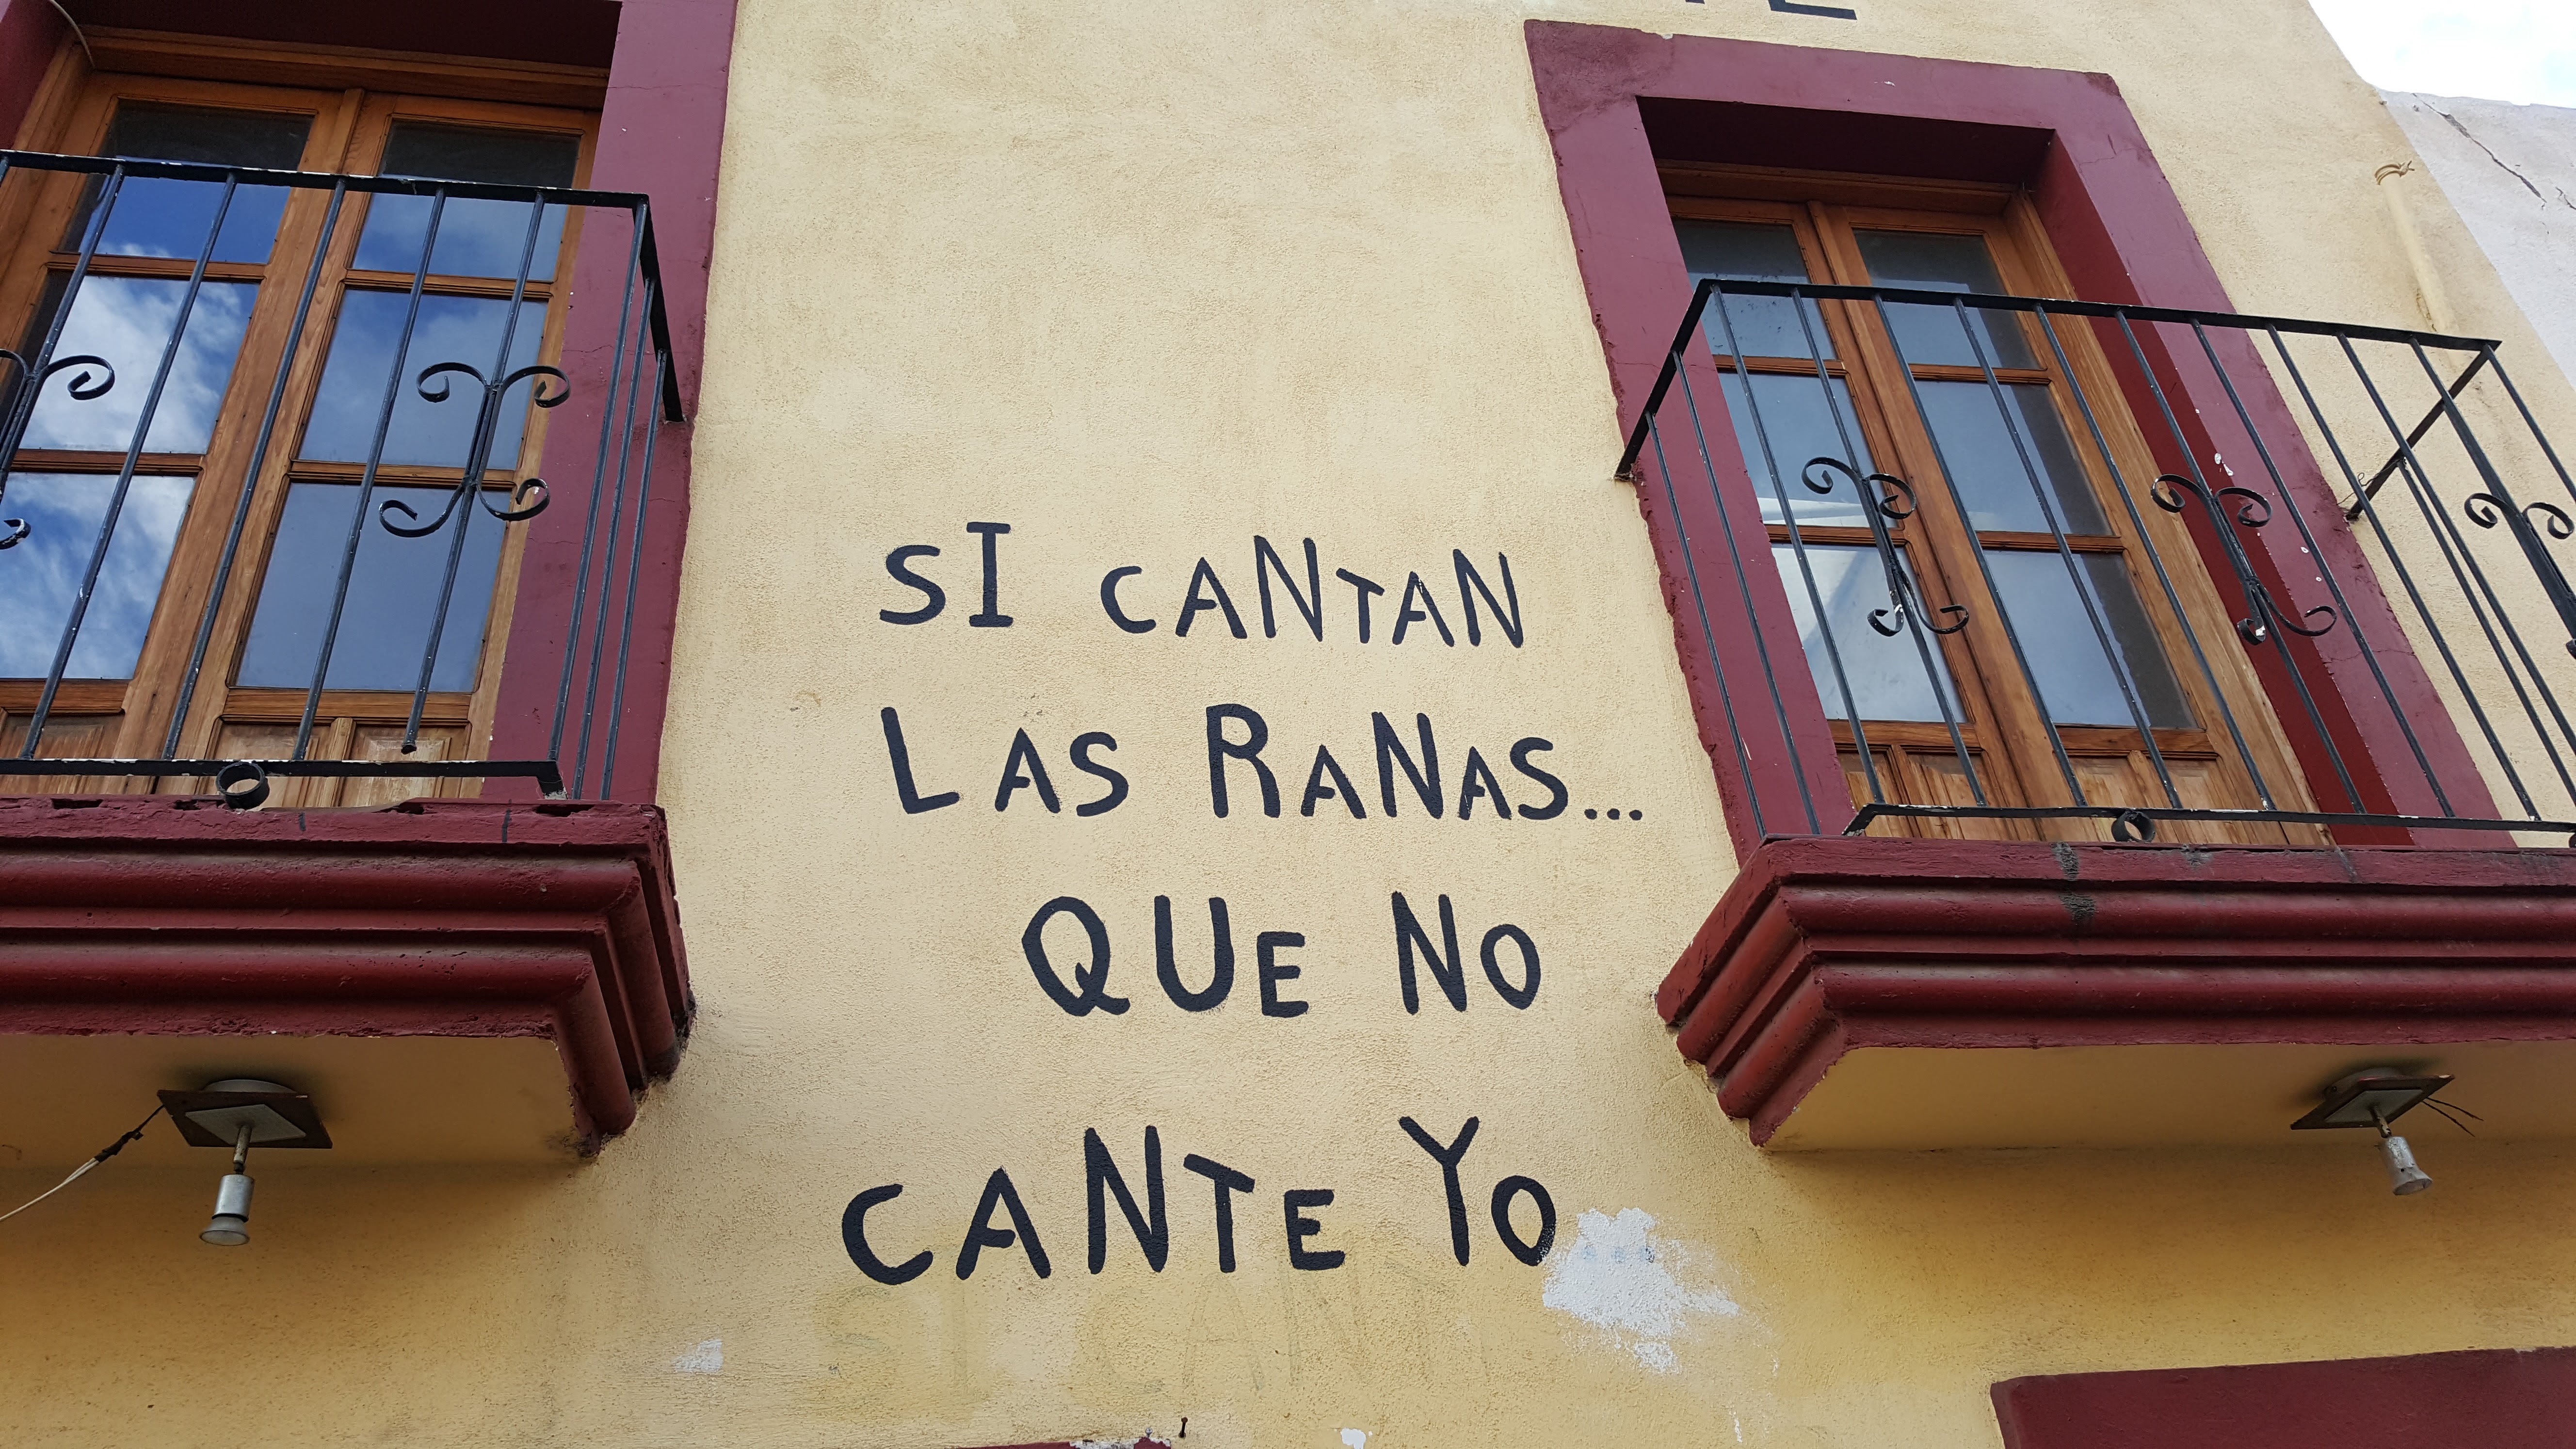 SI CANTAN
LAS RANAS...
QUE NO
CANTE YO